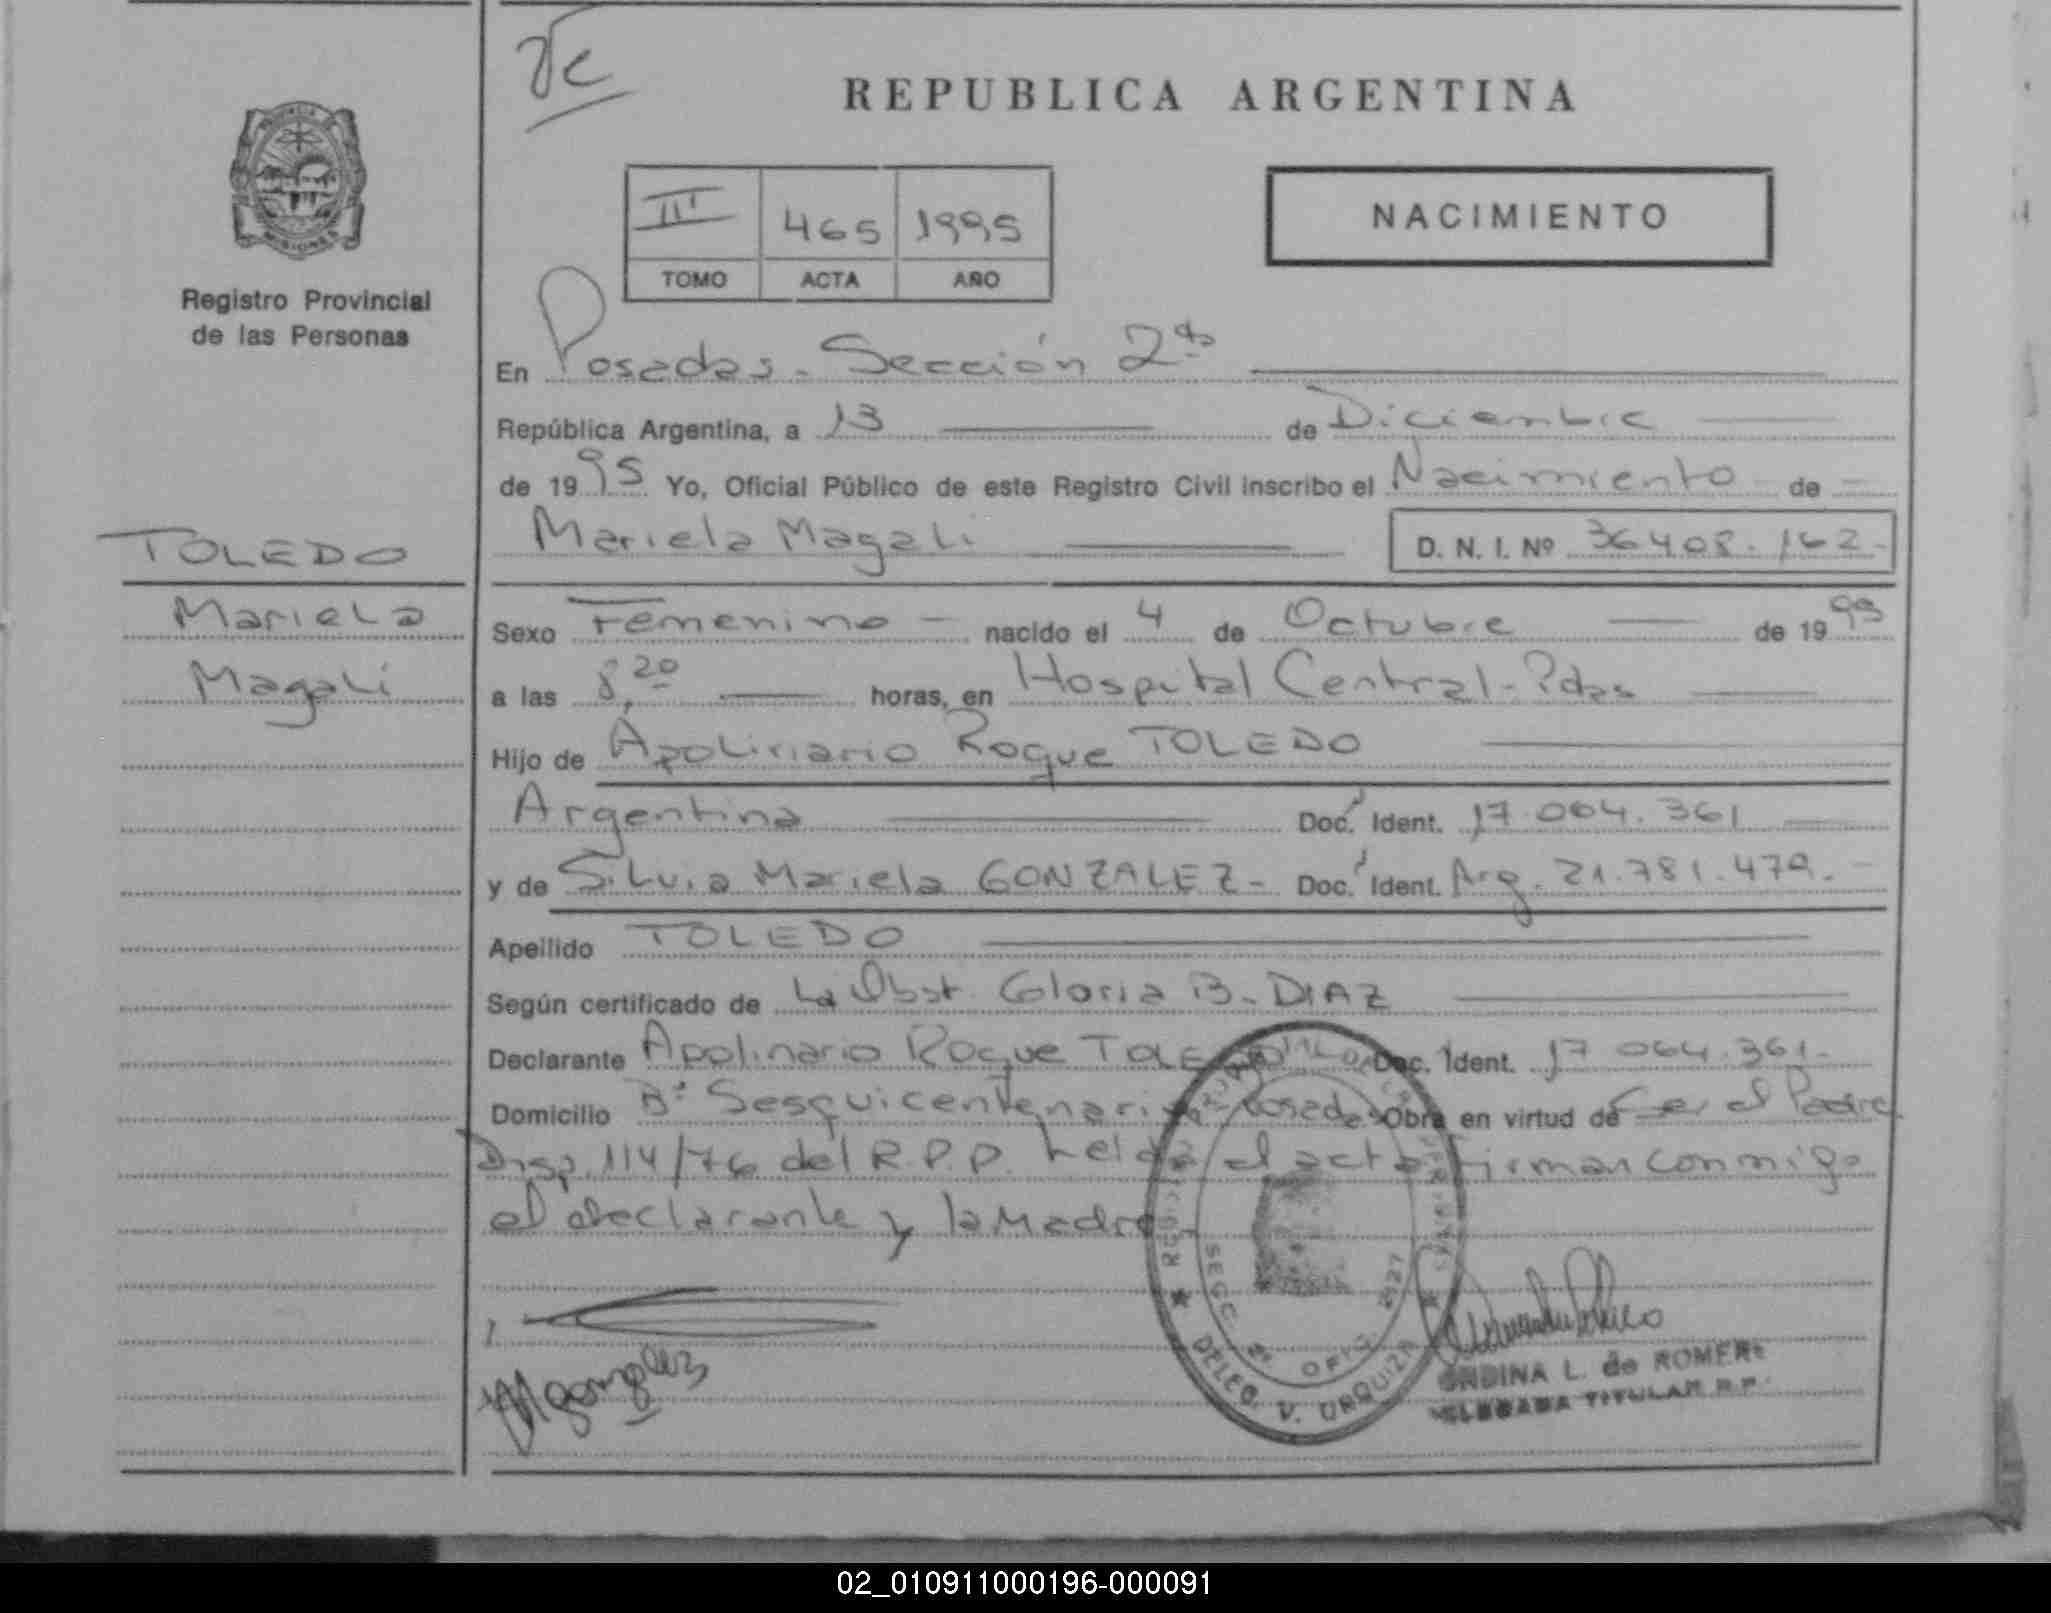 REPUBLICA ARGENTINA
NACIMIENTO
III 465 1995
TOMO ACTA AÑO
MISIONES
Registro Provincial
de las Personas
En Posadas - Sección 2da
República Argentina, a 13 de Diciembre
de 1995 Yo, Oficial Público de este Registro Civil inscribo el Nacimiento de
Mariela Magali D. N. I. Nº 36408.162-
TOLEDO
Mariela
Magali
Sexo Femenino - nacido el 4 de Octubre de 19
a las 8,20 horas, en Hospital Central - Pdas
Hijo de Apolinario Roque TOLEDO
Argentina Doc. Ident. 17.064.361
y de Silvia Mariela GONZALEZ- Doc. Ident. Arg. 21.781.479.-
Apellido TOLEDO
Según certificado de La Obst. Gloria B. DIAZ
Declarante Apolinario Roque TOLEDO Doc. Ident. 17.064.361-
Domicilio Bº Sesquicentenario Posadas Obra en virtud de Ser el Padre
Disp. 114/76 del R.P.P. Leida el acta firman conmigo
el declarante y la Madre
SECC 2ª OFIC
DELEG. V. URQUIZA
MGonzalez
ONDINA L. de ROMERO
DELEGADA TITULAR R.P.
02_010911000196-000091